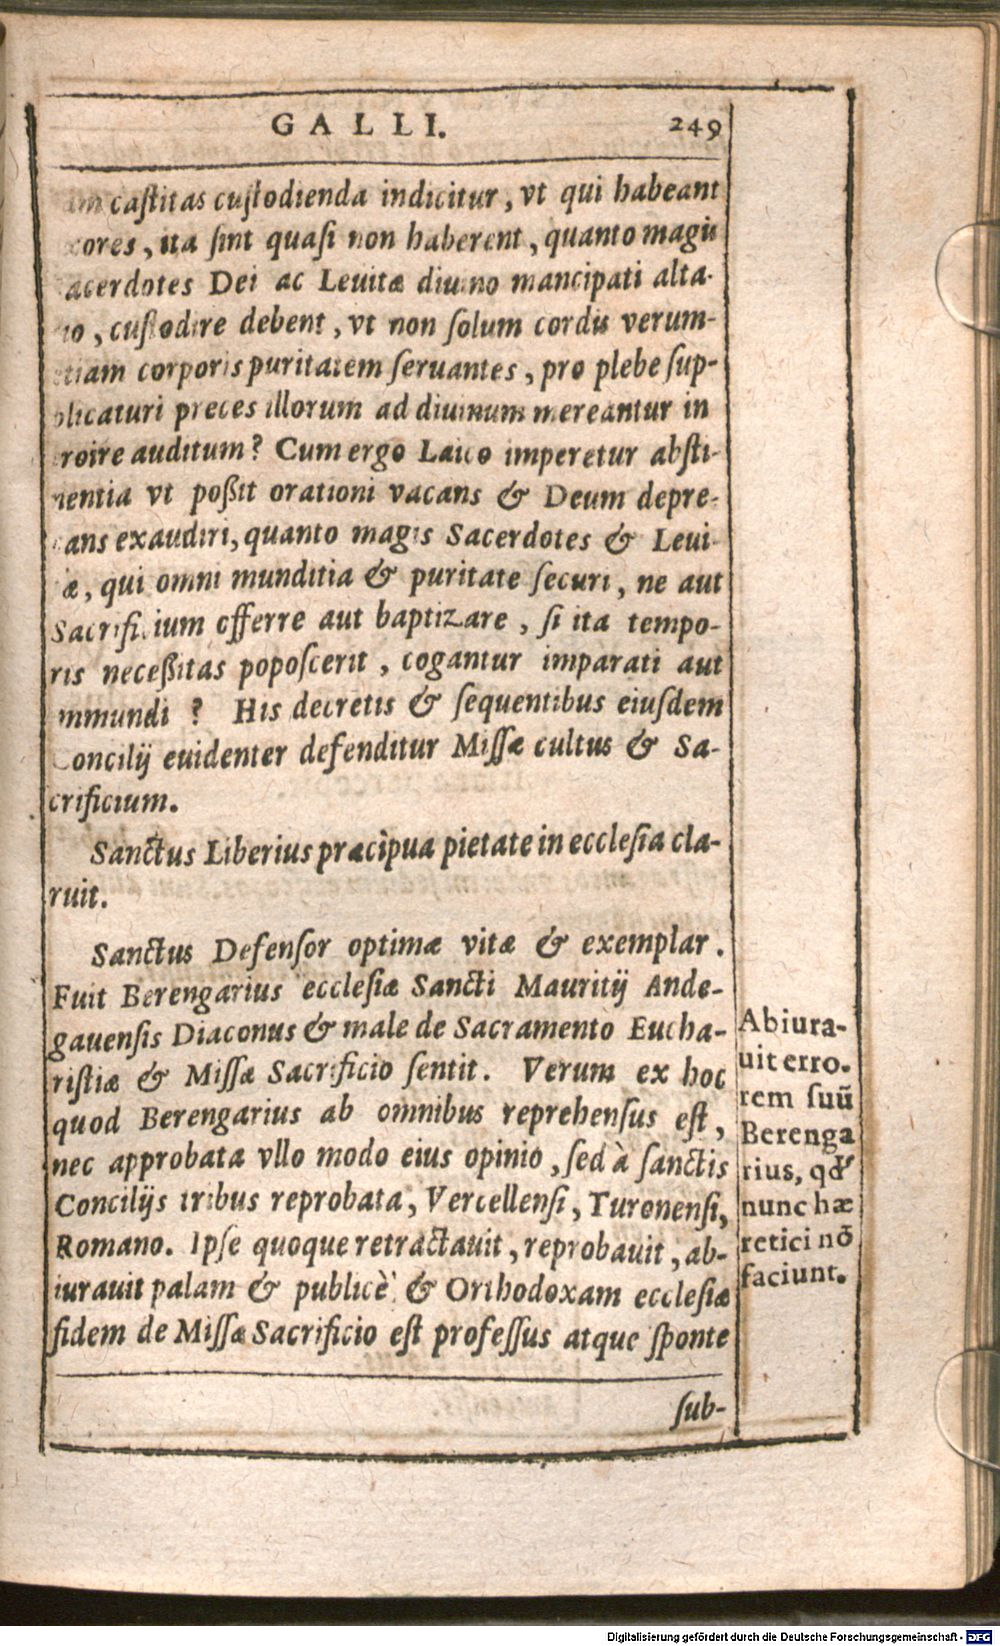 GALLI. 249
im caſtitas cuſtodienda indicitur, vt qui habeant
xores, ita ſint quaſi non haberent, quanto magis
acerdotes Dei ac Leuitæ diuino mancipati alta-
io, cuſtodire debent, vt non ſolum cordis verum-
etiam corporis puritatem ſeruantes, pro plebe ſup-
plicaturi preces illorum ad diuinum mereantur in
troire auditum? Cum ergo Laico imperetur abſti-
nentia vt poßit orationi vacans & Deum depre-
cans exaudiri, quanto magis Sacerdotes & Leui-
æ, qui omni munditia & puritate ſecuri, ne aut
Sacrificium offerre aut baptizare, ſi ita tempo-
ris neceßitas popoſcerit, cogantur imparati aut
mmundi? His decretis & ſequentibus eiuſdem
Concilij euidenter defenditur Miſſæ cultus & Sa-
crificium.
Sanctus Liberius præcipua pietate in eccleſia cla-
ruit.
Sanctus Defenſor optimæ vitæ & exemplar.
Fuit Berengarius eccleſiæ Sancti Mauritij Ande-
gauenſis Diaconus & male de Sacramento Eucha-
riſtiæ & Miſſæ Sacrificio ſentit. Verum ex hoc
quod Berengarius ab omnibus reprehenſus eſt,
nec approbata vllo modo eius opinio, ſed à ſanctis
Concilijs tribus reprobata, Vercellenſi, Turonenſi,
Romano. Ipſe quoque retractauit, reprobauit, ab-
iurauit palam & publicè & Orthodoxam eccleſiæ
fidem de Miſſæ Sacrificio eſt profeſſus atque ſponte
ſub-
Abiura-
uit erro-
rem ſuũ
Berenga
rius, qđ
nunc hæ
retici nõ
faciunt.
Digitalisierung gefördert durch die Deutsche Forschungsgemeinschaft - DFG